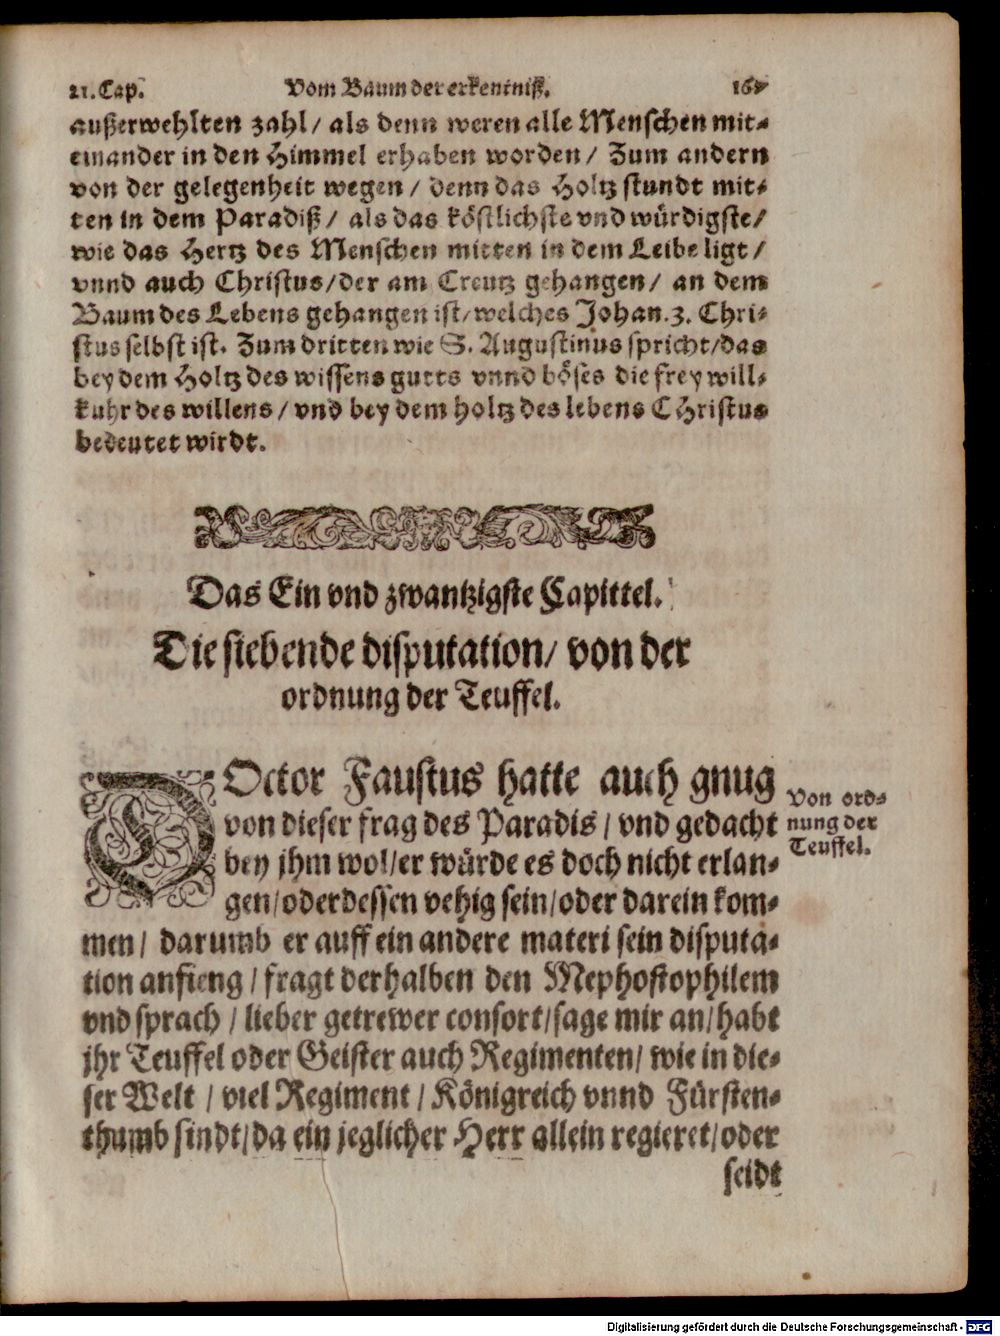 21. Cap. Vom Baum der erkentniß.
außerwehlten zahl / als denn weren alle Menschen mit⸗
einander in den Himmel erhaben worden / Zum andern
von der gelegenheit wegen / denn das Holtz stundt mit⸗
ten in dem Paradiß / als das köstlichste vnd würdigste /
wie das Hertz des Menschen mitten in dem Leibe ligt /
vnnd auch Christus / der am Creutz gehangen / an dem
Baum des Lebens gehangen ist / welches Johan. 3. Chri⸗
stus selbst ist. Zum dritten wie S. Augustinus spricht / das
bey dem Holtz des wissens gutts vnnd böses die frey will⸗
kuhr des willens / vnd bey dem holtz des lebens CHristus
bedeutet wirdt.
Das Ein vnd zwantzigste Capittel.
Die siebende disputation / von der
ordnung der Teuffel.
DOctor Faustus hatte auch gnug
von dieser frag des Paradis / vnd gedacht
bey jhm wol / er würde es doch nicht erlan⸗
gen / oder dessen vehig sein / oder darein kom⸗
men / darumb er auff ein andere materi sein disputa⸗
tion anfieng / fragt derhalben den Mephostophilem
vnd sprach / lieber getrewer consort / sage mir an / habt
jhr Teuffel oder Geister auch Regimenten / wie in die⸗
ser Welt / viel Regiment / Königreich vnnd Fürsten⸗
thumb sindt / da ein jeglicher Herr allein regieret / oder
seidt
Von ord⸗
nung der
Teuffel.
Digitalisierung gefördert durch die Deutsche Forschungsgemeinschaft - DFG